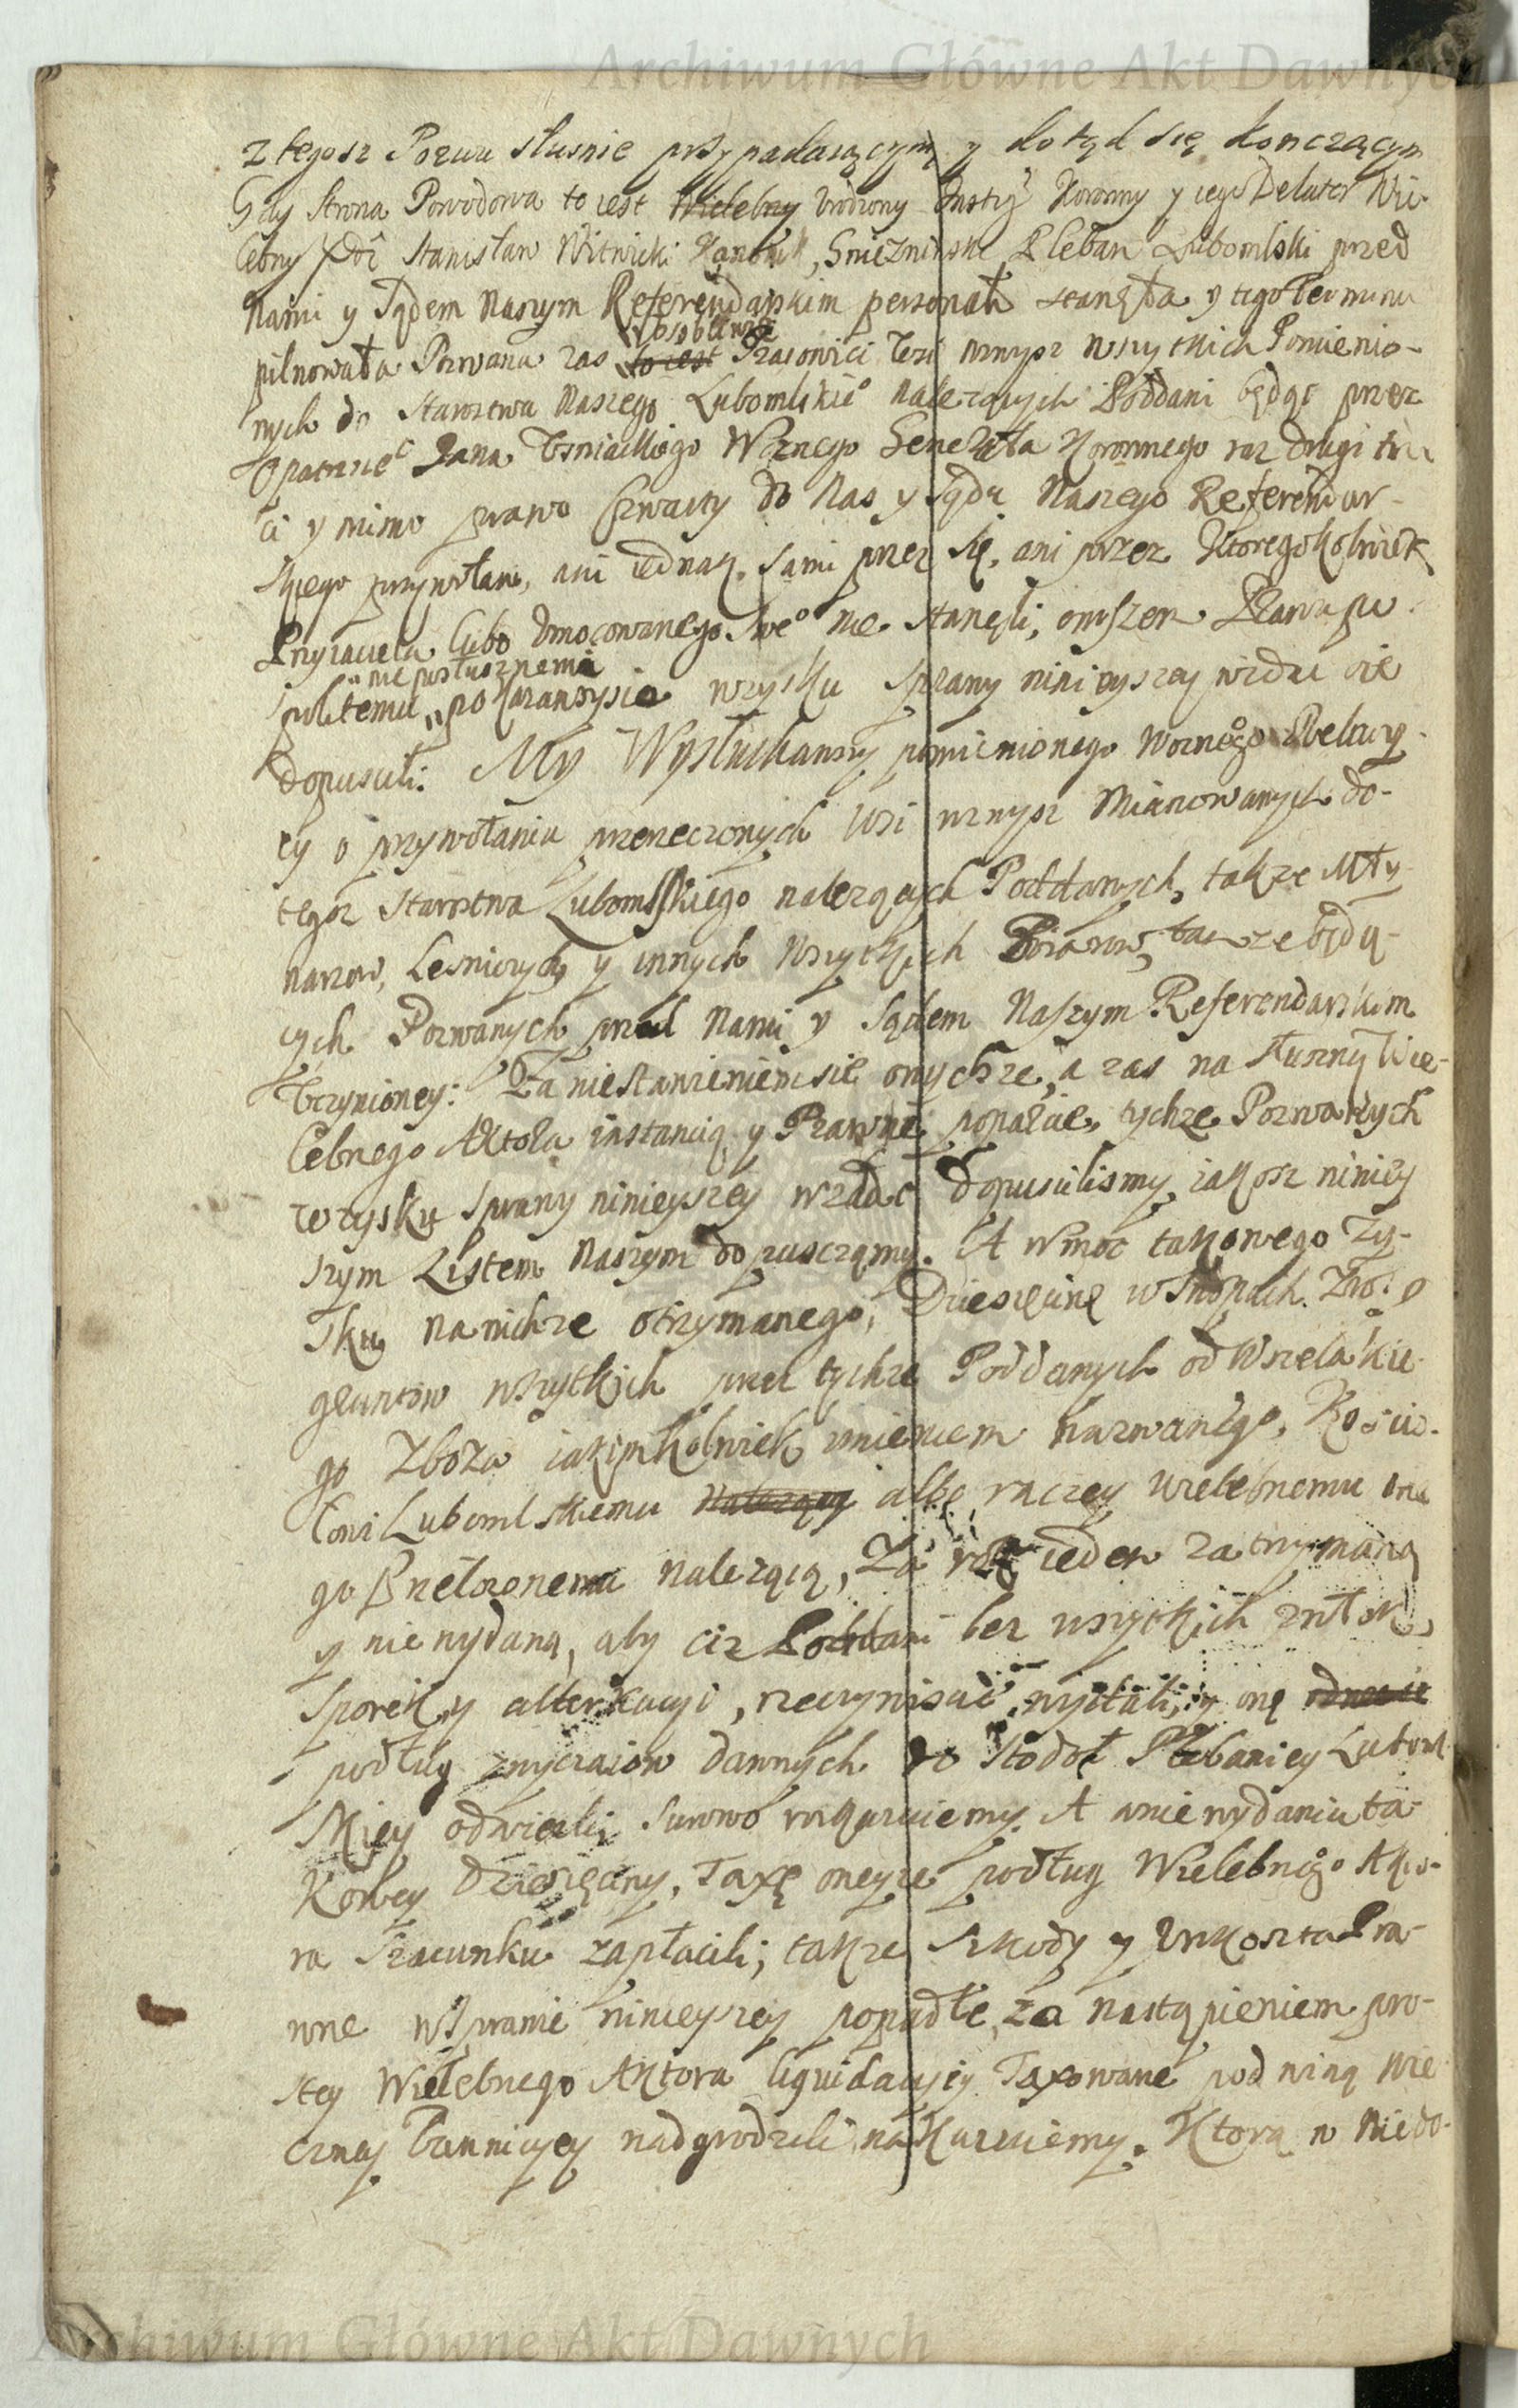 Archiwum Główne Akt Dawnych
z tegosz Pozwu słusnie przypadaiącym y dotąd się konczącym
Gdy Strona Powodowa to iest Wielebny Urodzony Instyg Koronny y iego Delator Wie-
lebny Xdz Stanisław Witwicki Kanonik Gniezninski Pleban Lubomlski przed
Nami y Sądem Naszym Referendarskim personalr stanęła y tego Terminu
osobliwie
pilnowała Pozwana zas to iest Pracowici wsi wzwysz wszytkich Pomienio-
nych do Starostwa Naszego Lubomlskieo należących Poddani będąc przez
Opatrznec Jana Woznego Generała Koronnego raz drugi trze
ci y mimo prawo czwarty do Nas y Sądu Naszego Referendar-
skiego przywołani, ani iednak sami przez się, ani przez Ktoregokolwiek
Przyiaciela lubo Umocowanego Sweo nie stanęli, owszem Prawu po
nieposłusznemi
spolitemu pokazawszysie wzysku Sprawy ninieyszey wzdac się
dopuscili. My Wysłuchawszy pomienionego Woznego Relacy-
ey o przywołaniu przerzeczonych wsi wzwysz Mianowanych do-
tegoz Starostwa Lubomlskiego należących Poddanych, także Mły-
narzow, Lesniczych y innych wszytkich także będą-
cych Pozwanych przed Nami y Sądem Naszym Referendarskim
Uczynioney: Za niestawieniem sie onychze, a zas na słuszną Wie-
lebnego Aktora instancią y Prawne poparcie, tychze Pozwanych
w zysku Sprawy ninieyszey wzdac dopuscilismy iakosz niniey
szym Listem Naszym dopusczamy. A wmoc takowego Zy-
sku na nichze otrzymanego, Dziesięcinę w Snopach Zbo
gruntow wszytkich przez tychze Poddanych od Wszelakie-
go Zboża iakimkolwiek imieniem nazwanego, Koscio-
łowi Lubomlskiemu Należącą albo raczey wielebnemu one
go należącą, Za rok ieden zatrzymaną
y nie wydaną, aby ciz Poddani bez wszytkich zwłok,
Sporek y alterkacyi, rzeczywiscie wyttali, y onę
podług zwyczaiow dawnych do stodoł Plebaniey Luboml-
skiey odwiezli surowo rozkazuiemy. A wnie wydaniu ta-
kowey Dziesięciny, Taxę oneyze podług Wielebnego Akto-
ra Szacunku zapłacili; także szkody y Unkoszta Pra-
wne w Sprawie ninieyszey popadłe, za nastąpieniem pro-
stey Wielebnego Aktora liquidacyey Taxowane pod winą wie
czney Banniciey nadgrodzili nakazuiemy. Ktora w Niedo-
Archiwum Główne Akt Dawnych